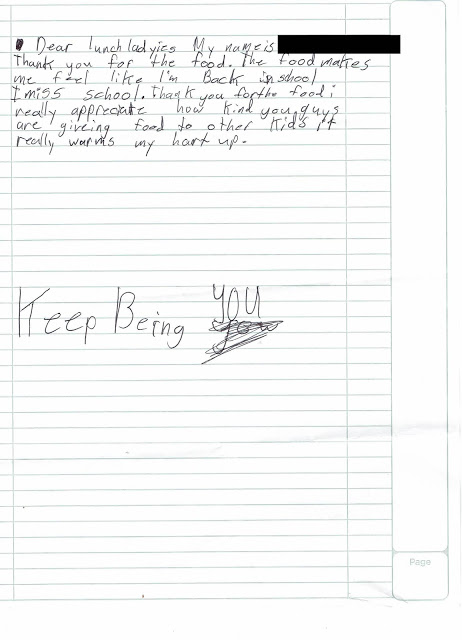 Dear lunch ladyies My name is
Thank you for the food. The food makes
me feel like I'm Back in school
I miss school. Thank you for the food i
really appreciate how kind you guys
are giveing food to other kids it
really warms my hart up.
Keep Being you
Page